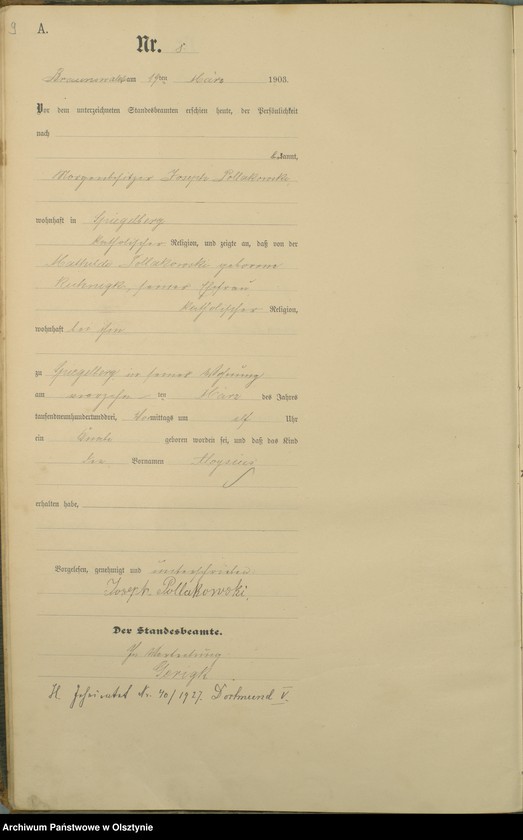 9
A.
Nr. 5.
am 19ten März 1903.
Vor dem unterzeichneten Standesbeamten erschien heute, der Persönlichkeit
nach
kannt,
Joseph Pollakowski
wohnhaft in Spiegelberg
katholischer Religion, und zeigte an, daß von der
Mathilde Pollakowski geborene
seiner Ehefrau
katholischer Religion,
wohnhaft bei ihm
zu Spiegelberg in seiner Wohnung
am ten März des Jahres
tausendneunhundertunddrei, Vormittags um elf Uhr
ein Knabe geboren worden sei, und daß das Kind
den Vornamen Aloysius
erhalten habe.
Vorgelesen, genehmigt und unterschrieben
Joseph Pollakowski.
Der Standesbeamte.
In Vertretung
Gerigk
Nr. 40/1927. Dortmund V.
Archiwum Państwowe w Olsztynie